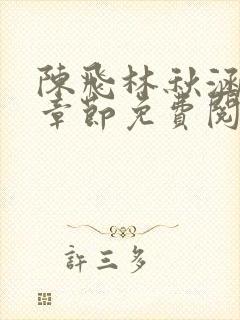 陳飛林秋涵
章節免費閱
許三多